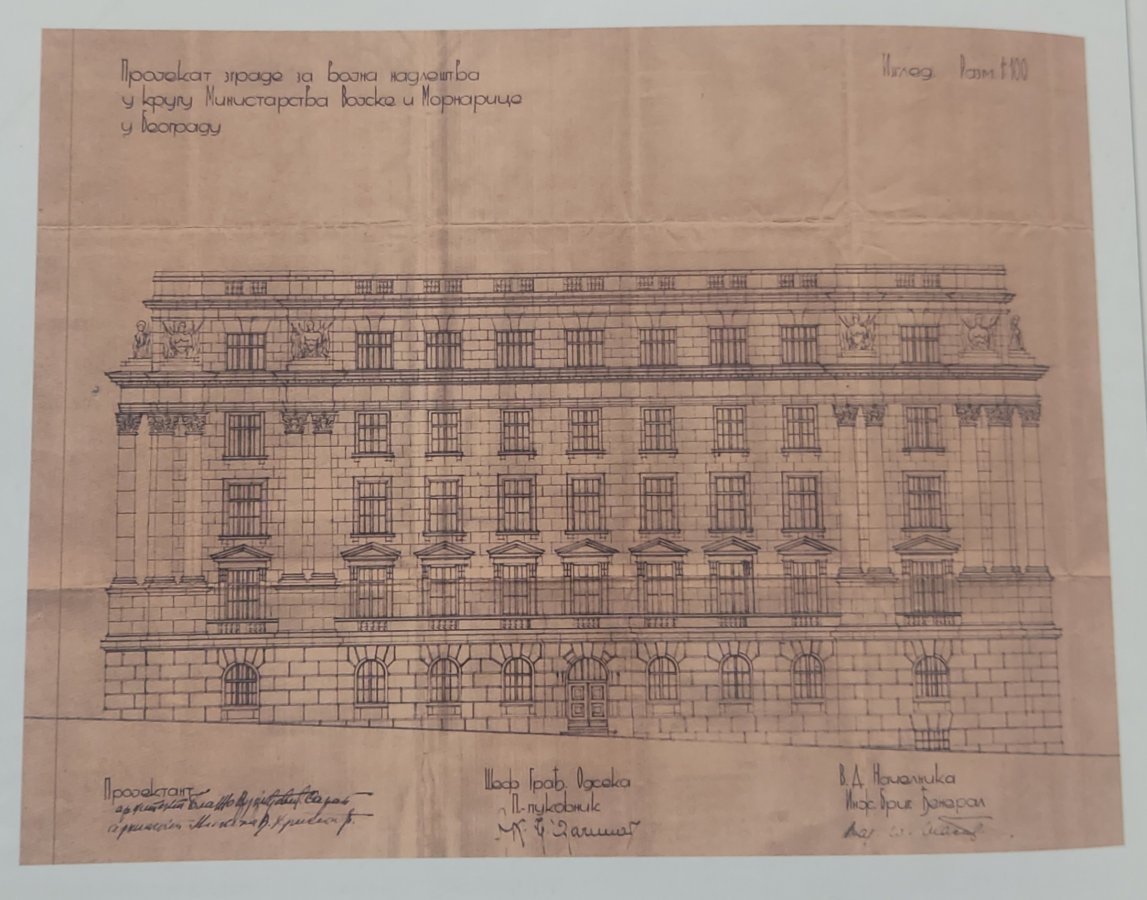 Пројекат зграде за војна надлештва
у кругу Министарства Војске и Морнарице
у Београду
Изглед. Разм. 1:100
Пројектант
архитект
архитект
Шеф Грађ. Одсека
П.-пуковник
В.Д. Начелника
Инж. Бриг. Ђенерал